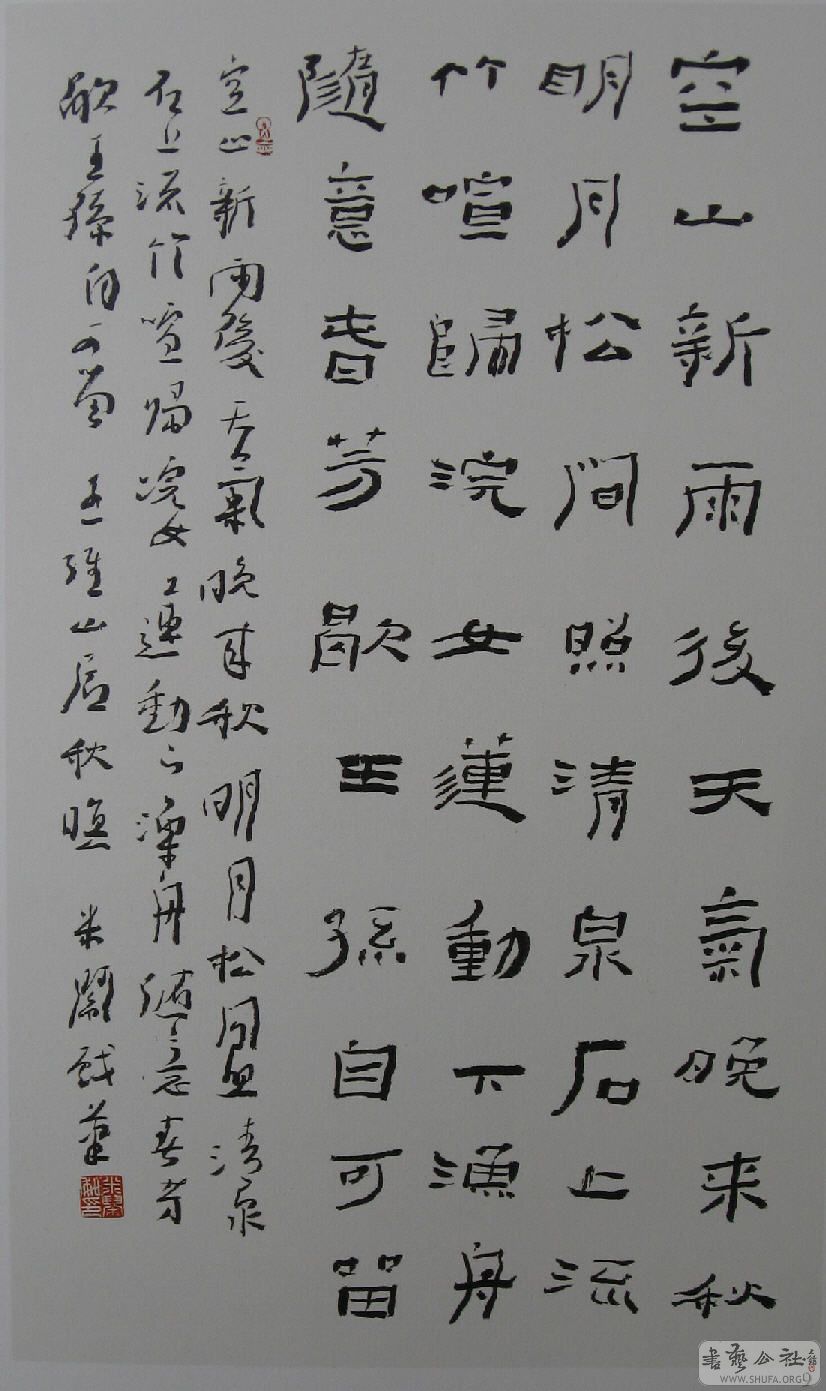 空山新雨後天氣晚来秋
明月松間照清泉石上流
竹喧歸浣女蓮動下漁舟
隨意春芳歇王孫自可留
空山新雨後天氣晚来秋明月松間照清泉
石上流竹喧歸浣女蓮動下漁舟隨意春芳
歇王孫自可留 王維山居秋暝 米鬧戲筆
書藝公社
WWW.SHUFA.ORG